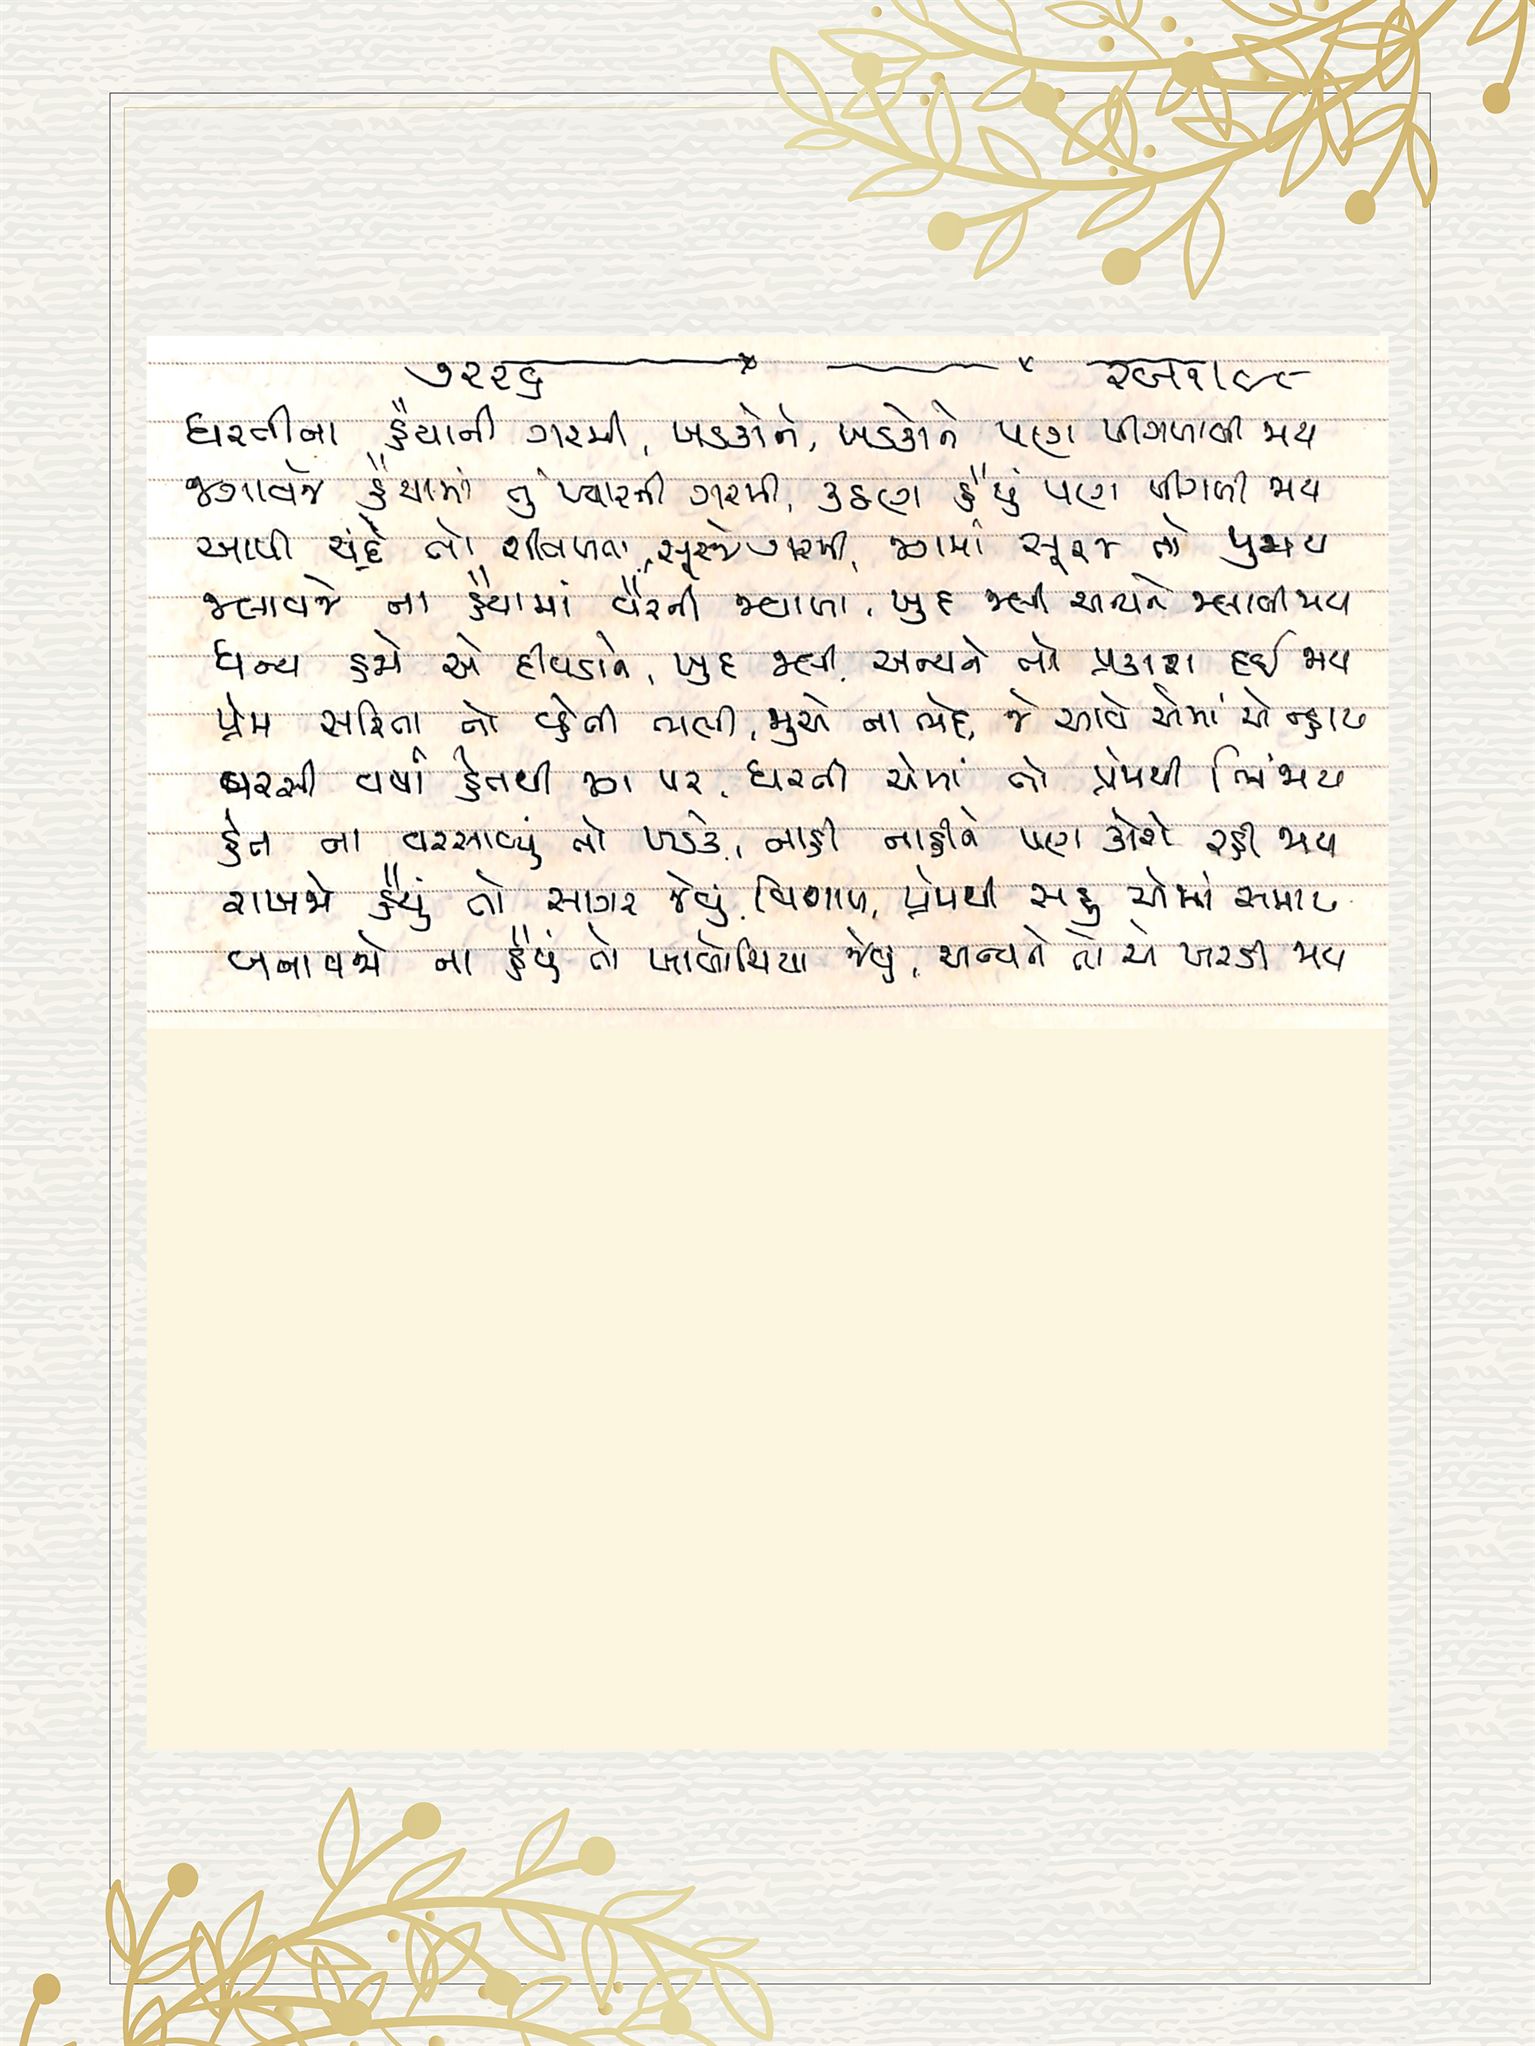 ધરતીના હૈયાની ગરમી, ખડકોને, ખડકોને પણ પીગળાવી જાય
જગાવજે હૈયામાં તું પ્યારની ગરમી, કઠણ હૈયું પણ પીગળી જાય
આપી ચંદ્રે તો શીતળતા, સૂરજે ગરમી, જગમાં સૂરજ તો પુજાય
જલાવજે ના હૈયામાં વૈરની જ્વાળા, ખુદ જલી અન્યને જલાવી જાય
ધન્ય કહજો એ દીવડાને, ખુદ જલી, અન્યને તો પ્રકાશ દઈ જાય
પ્રેમ સરિતા તો વહેતી ભલી, જુએ ના ભેદ, જે આવે એમાં એ ન્હાય
વરસી વર્ષા હેતથી જગ પર, ધરતી એમાં તો પ્રેમથી ભિંજાય
હેત ના વરસાવ્યું તો ખડકે, નાહી નાહીને પણ કોરો રહી જાય
રાખજે હૈયું તો સાગર જેવું વિશાળ, પ્રેમથી સહુ એમાં સમાય
બનાવજો ના હૈયું તો ખાબોચિયા જેવું, અન્યને તો એ ખરડી જાય